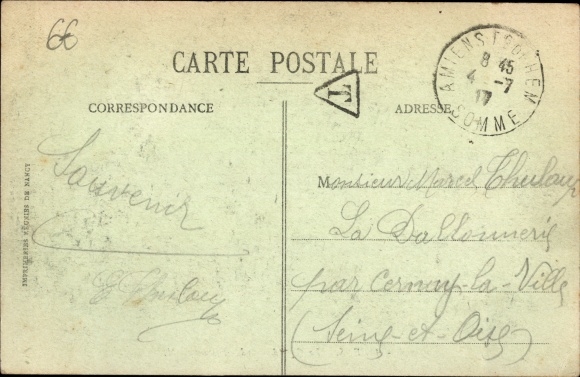 66
CARTE POSTALE
AMIENS Fg DE HEM
8 45
4 -7
17
SOMME
T
CORRESPONDANCE
ADRESSE
Souvenir
IMPRIMERIES RÉUNIES DE NANCY
Monsieur Marcel
La
par Cernay-la-Ville
(Seine-et-Oise)